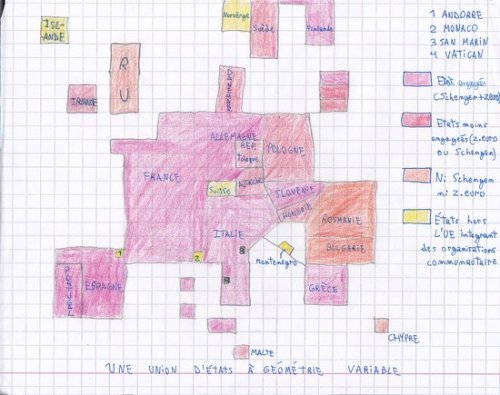 ISL-
ANDE
Norvège
Suède
Finlande
1 ANDORRE
2 MONACO
3 SAN MARIN
4 VATICAN
R
U
IRLANDE
DANEMARK
ALLEMAGNE
POLOGNE
REP.
Tchèque
FRANCE
SUISSE
AUTRICHE
SLOVENIE
HONGRIE
ITALIE
ROUMANIE
BULGARIE
Montenegro
1
2
PORTUGAL
ESPAGNE
GRÈCE
CHYPRE
MALTE
États engagés
(Schengen+z.euro)
Etats moins
engagés(z.euro
ou Schengen)
Ni Schengen
ni z.euro
États hors
L'UE intégrant
des organisations
communautaire
UNE UNION D'ETATS À GÉOMÉTRIE VARIABLE